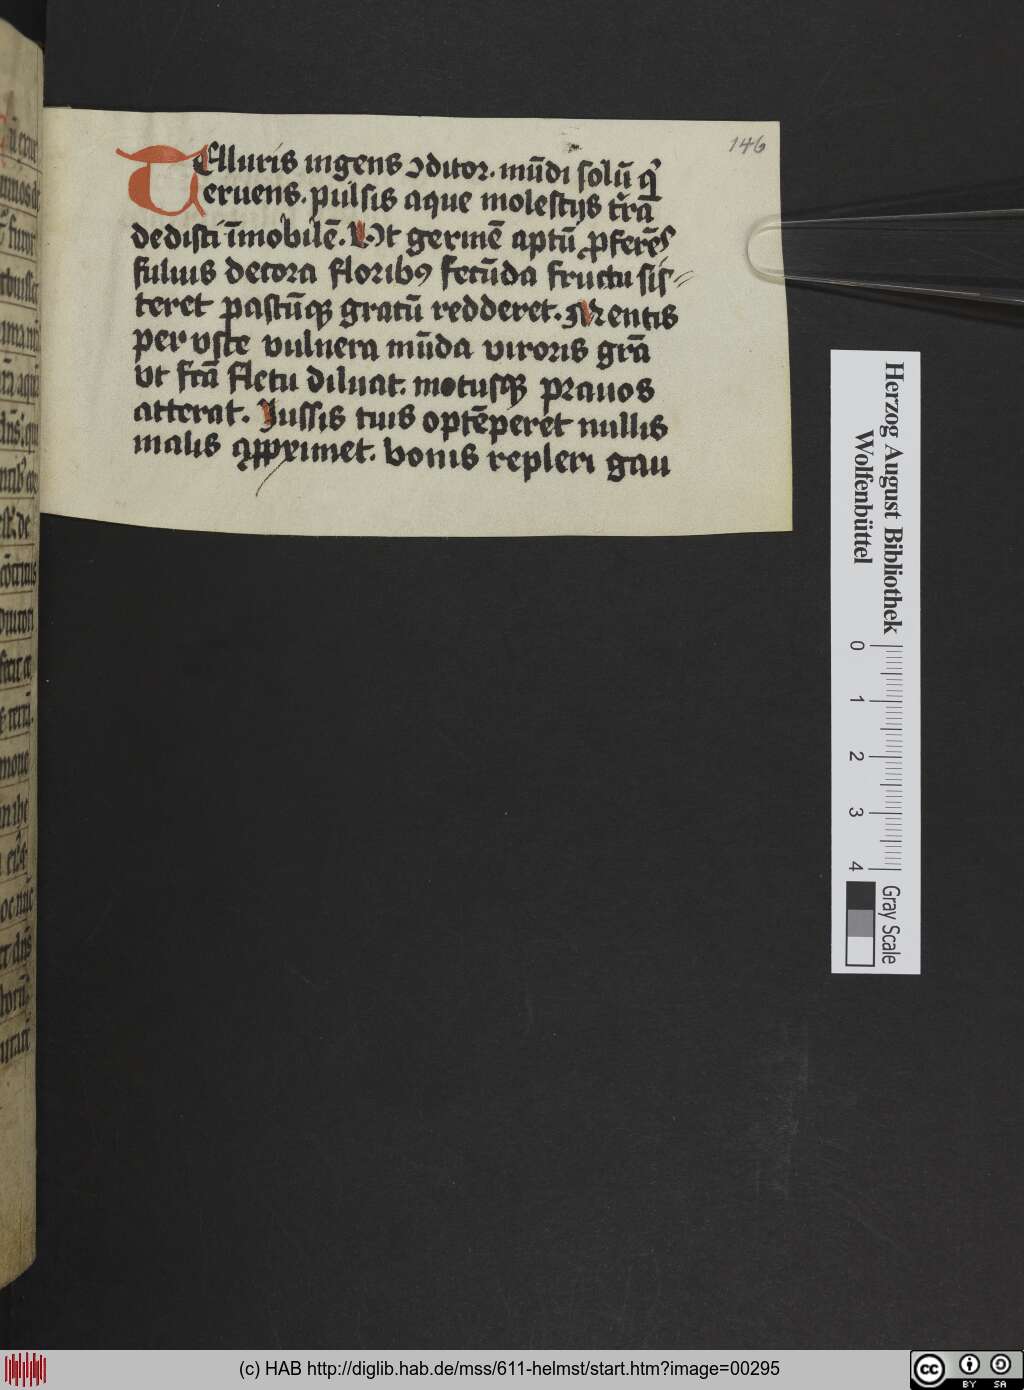 146
TElluris ingens ↄditor. mūdi solū qͥ
eruens. pulsis aque molestijs tr̄ā
dedisti īmobilē. Vt germē aptū ꝓferēs
fuluis decora floribꝰ fecūda fructu sis⸗
teret pastūqꝫ gratū redderet. Mentis
per vste vulnera mūda viroris grā
vt fcā fletu diluat. motusqꝫ prauos
atterat. Iussis tuis optēperet nullis
malis approximet. bonis repleri gau
Herzog August Bibliothek
Wolfenbüttel
0 1 2 3 4
Gray Scale
(c) HAB http://diglib.hab.de/mss/611-helmst/start.htm?image=00295
cc BY SA